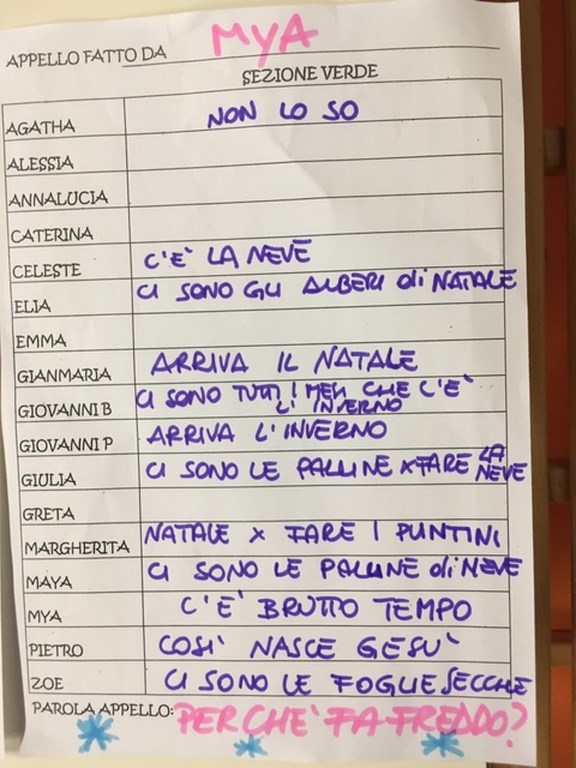 APPELLO FATTO DA MYA
SEZIONE VERDE
AGATHA NON LO SO
ALESSIA
ANNALUCIA
CATERINA
CELESTE C'E' LA NEVE
ELIA CI SONO GLI ALBERI di NATALE
EMMA
GIANMARIA ARRIVA IL NATALE
GIOVANNI B CI SONO TUTTI I MESI CHE C'E'
L'INVERNO
GIOVANNI P ARRIVA L'INVERNO
GIULIA CI SONO LE PALLINE X FARE LA
NEVE
GRETA
MARGHERITA NATALE X FARE I PUNTINI
MAYA CI SONO LE PALLINE di NEVE
MYA C'E' BRUTTO TEMPO
PIETRO COSI' NASCE GESU'
ZOE CI SONO LE FOGLIE SECCHE
PAROLA APPELLO: PERCHE' FA FREDDO?